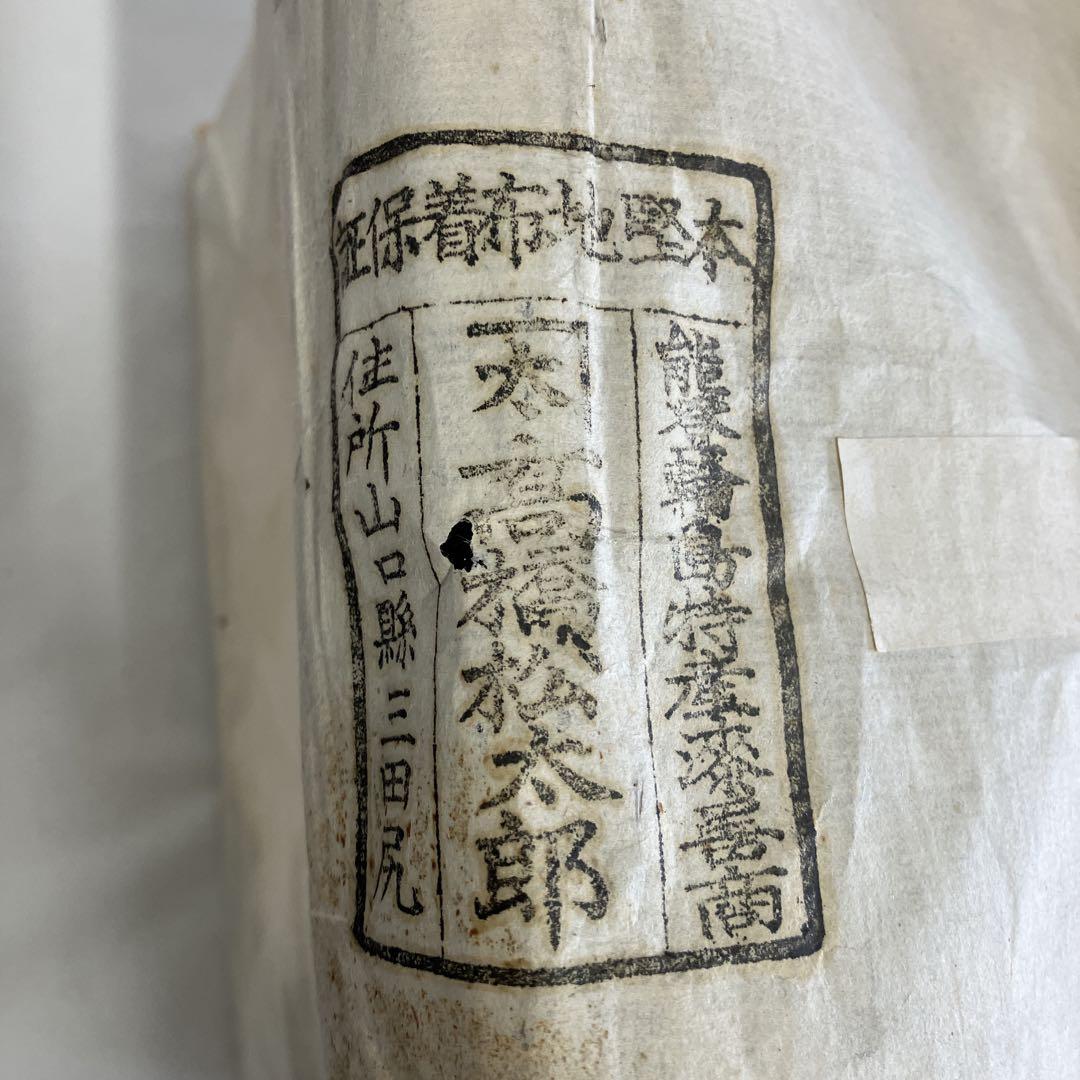 本堅地布着保証
能登輪島特産漆器商
高橋松太郎
住所山口縣三田尻